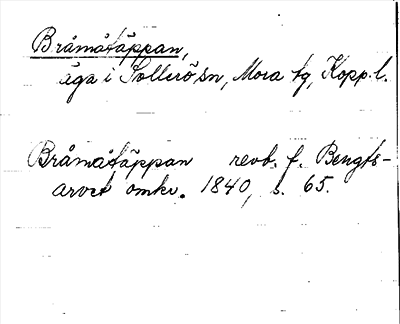 Bråmåtäppan,
äga i Sollerö sn, Mora tg, Kopp. l.
Bråmåtäppan revb. f. Bengts-
arvet omkr. 1840, s. 65.